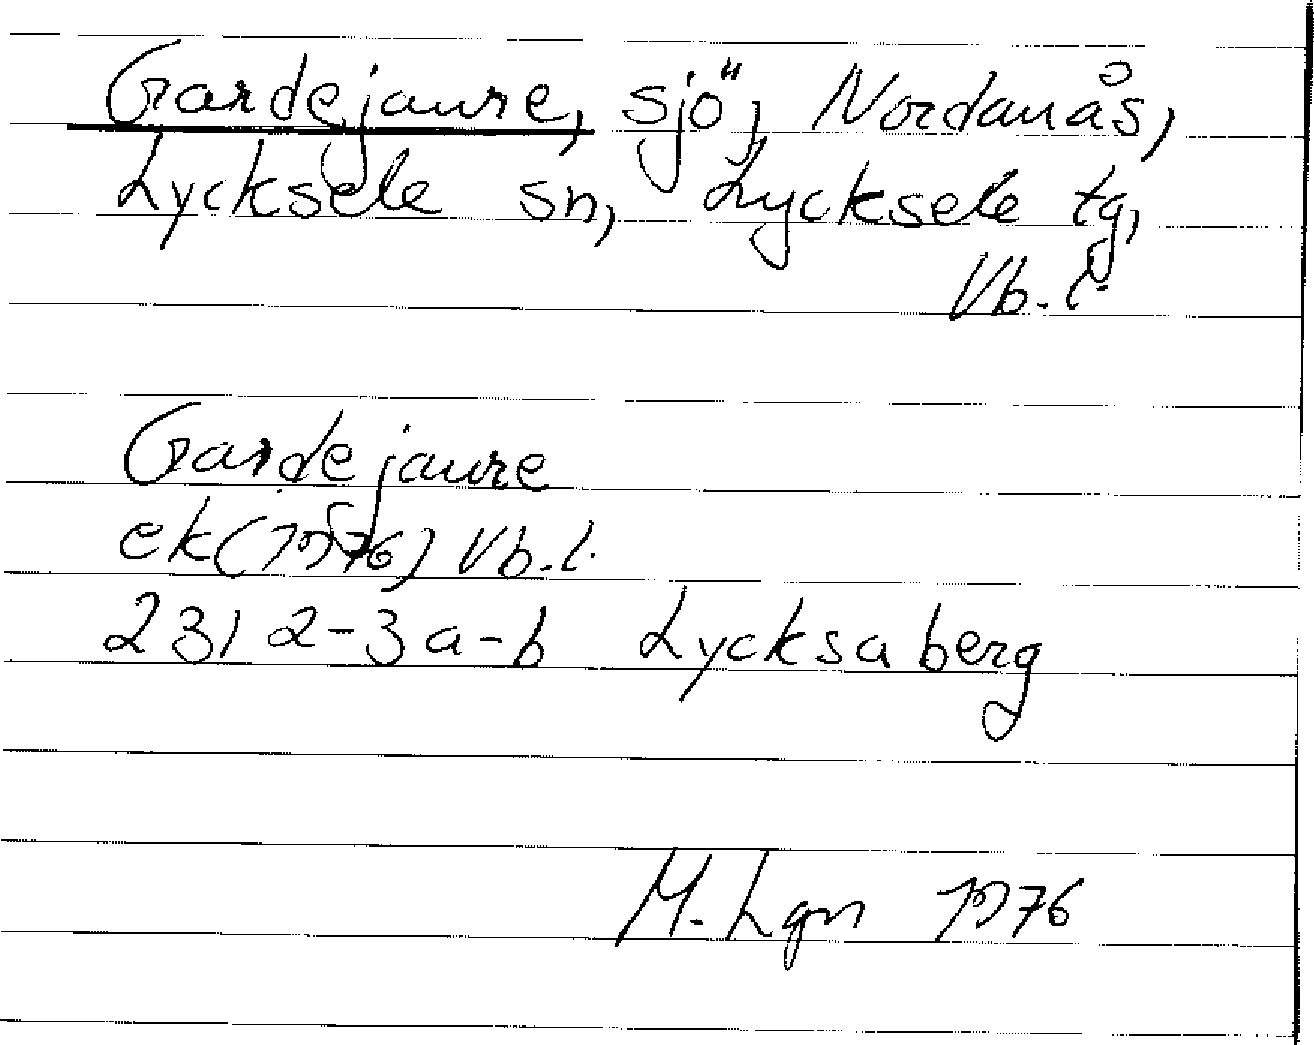 Gardejaure, sjö, Nordanås,
Lycksele sn, Lycksele tg,
Vb. l.
Gardejaure
ek (1976) Vb. l.
231 2-3 a-b Lycksaberg
M. Lgn 1976